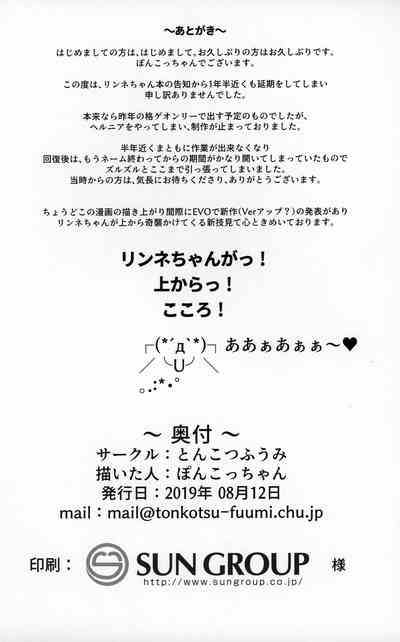 ～あとがき～
はじめましての方は、はじめまして。お久しぶりの方はお久しぶりです。
ぽんこっちゃんでございます。
この度は、リンネちゃん本の告知から1年半近くも延期をしてしまい
申し訳ありませんでした。
本来なら昨年の格ゲオンリーで出す予定のものでしたが、
ヘルニアをやってしまい、制作が止まっておりました。
半年近くまともに作業が出来なくなり
回復後は、もうネーム終わってからの期間がかなり開いてしまっていたもので
ズルズルとここまで引っ張ってしまいました。
当時からの方は、気長にお待ちくださり、ありがとうございます。
ちょうどこの漫画の描き上がり間際にEVOで新作(Verアップ？)の発表があり
リンネちゃんが上から奇襲かけてくる新技見て心ときめいております。
リンネちゃんがっ！
上からっ！
こころ！
┌(*´д`*)┐ああぁあぁぁ～♥
／ ╰U╯ ＼
｡.:*•°
～ 奥付 ～
サークル：とんこつふうみ
描いた人：ぽんこっちゃん
発行日：2019年 08月12日
mail：mail@tonkotsu-fuumi.chu.jp
印刷： SUN GROUP 様
http://www.sungroup.co.jp/